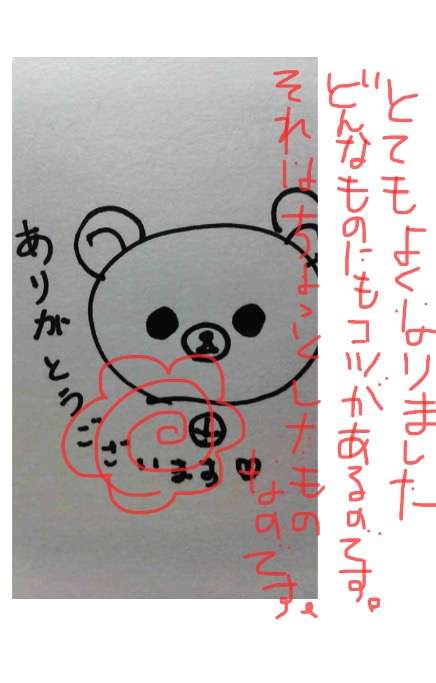 とてもよくなりました
どんなものにもコツがあるのです。
それはちょっとしたもの
なのです。
ありがとう
ございます